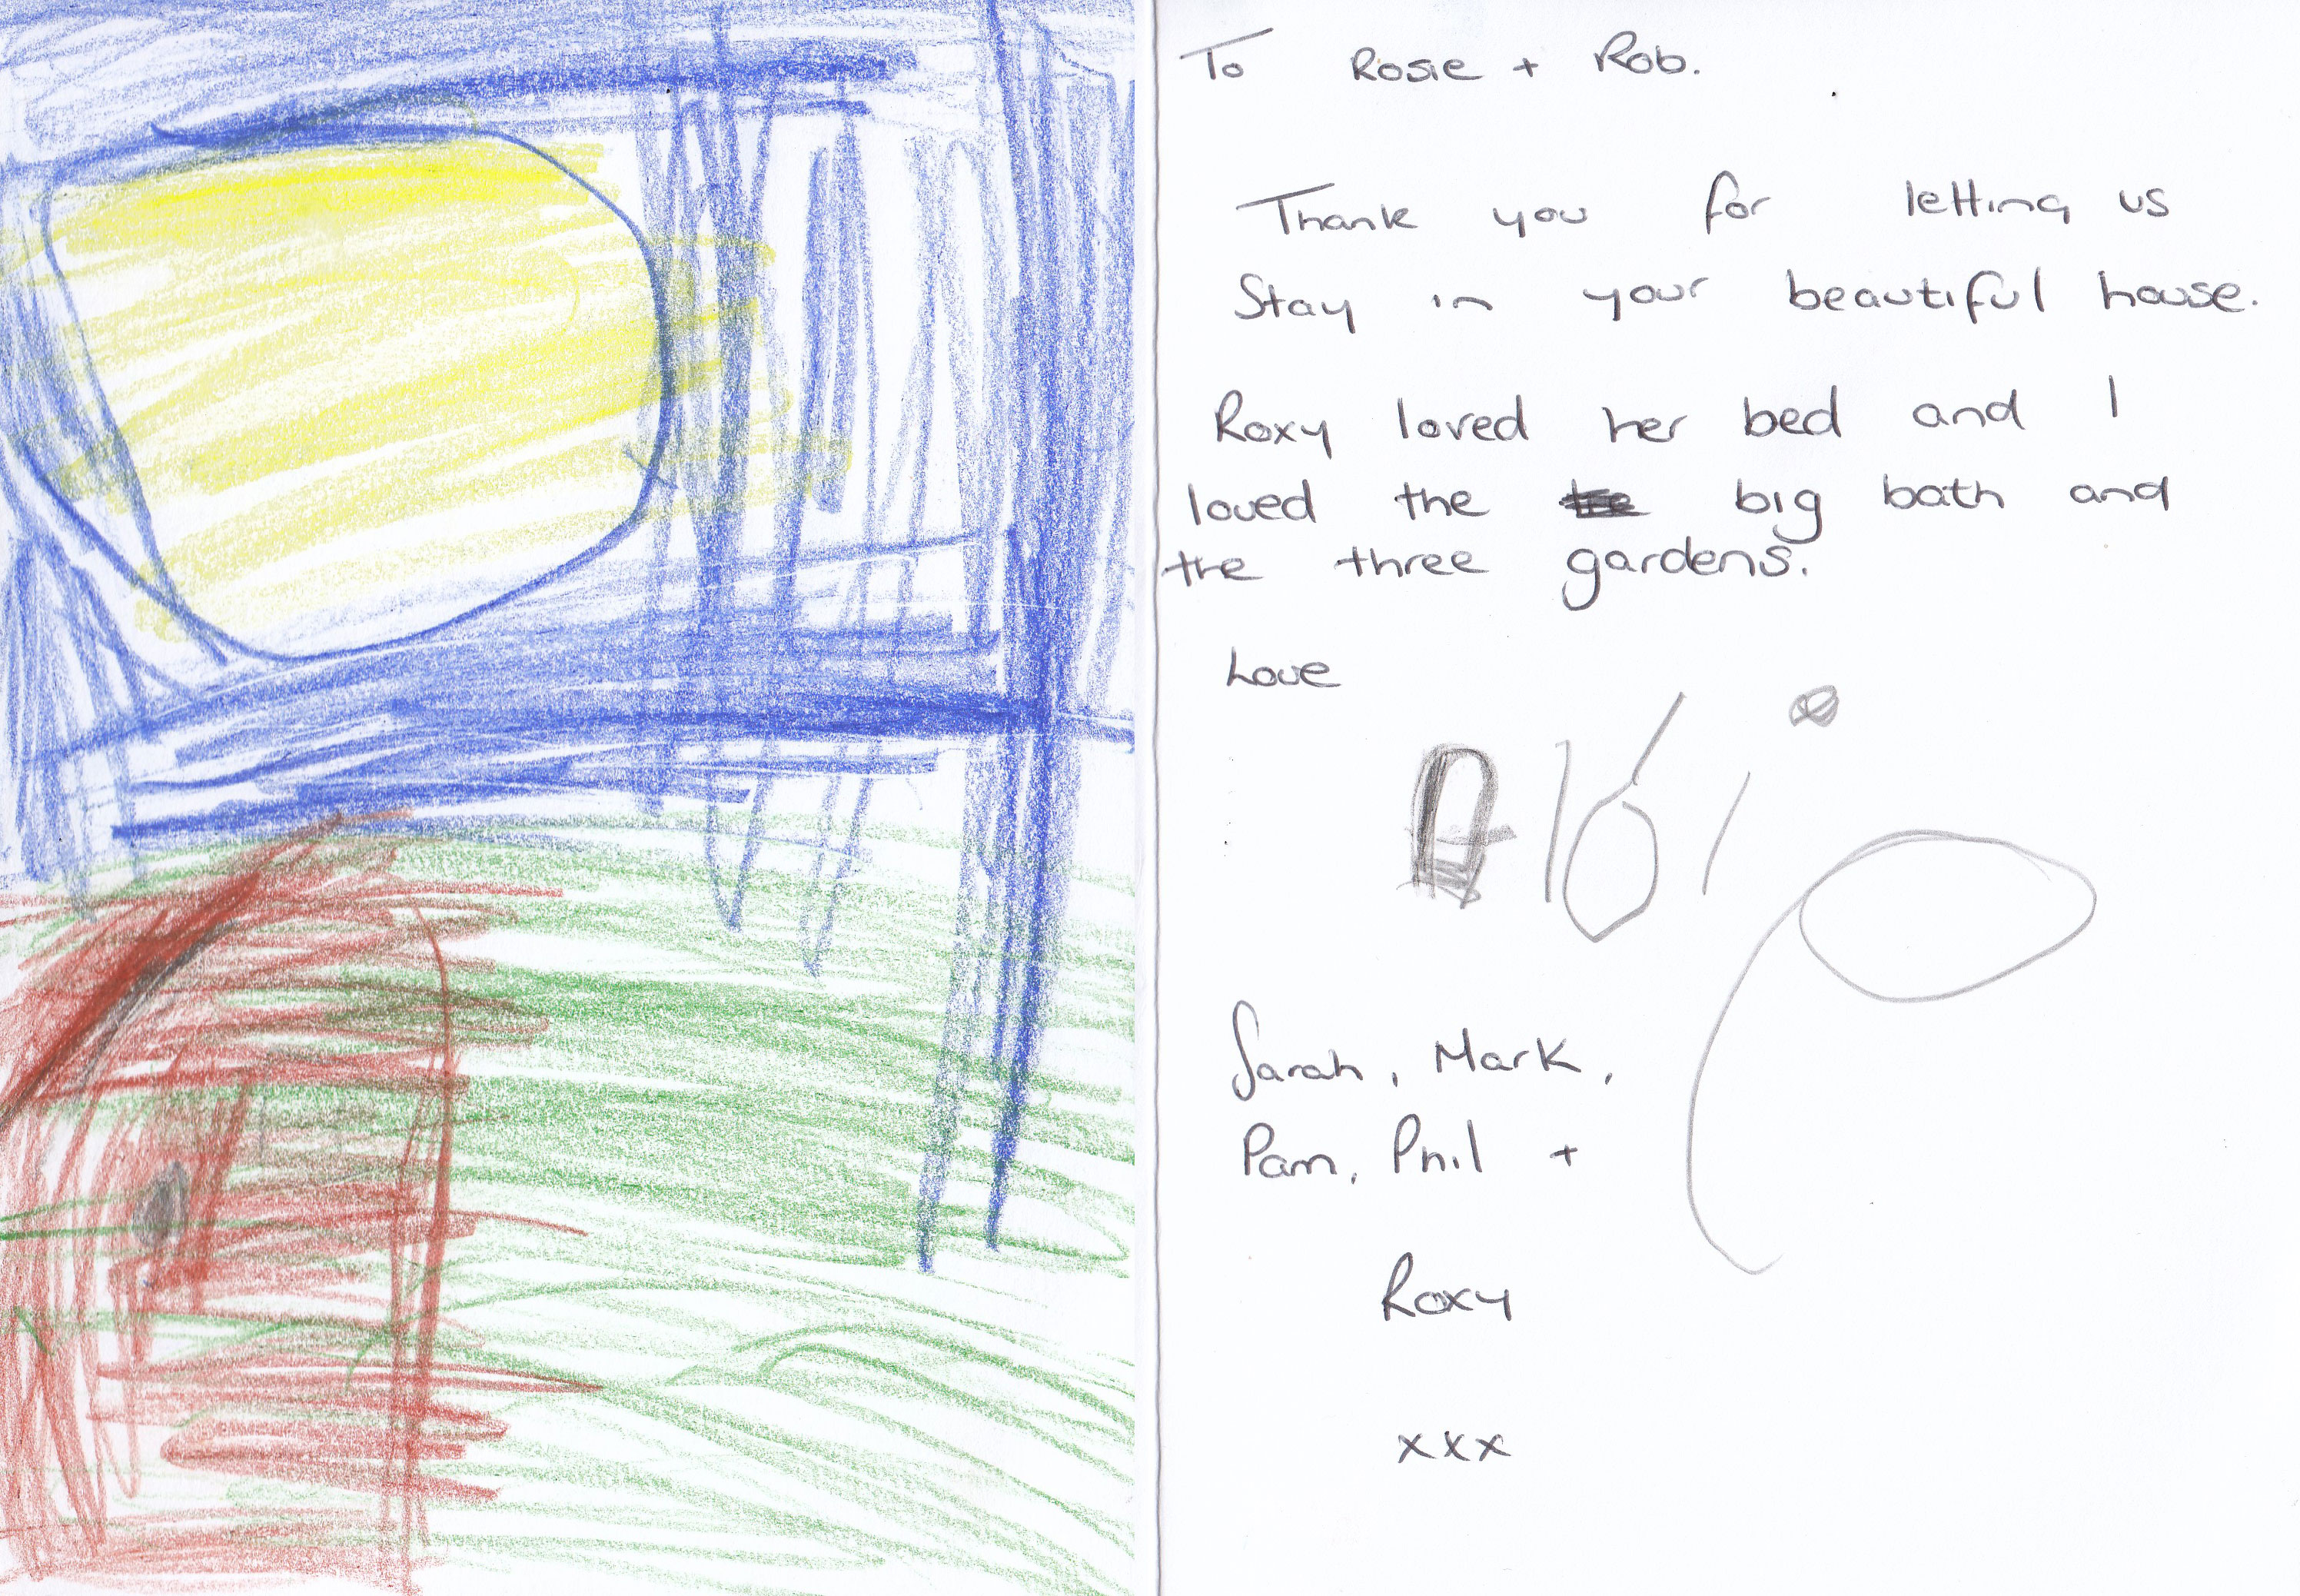 To Rosie + Rob.
Thank you for letting us
Stay in your beautiful house.
Roxy loved her bed and I
loved the big bath and
the three gardens.
Love
Albie
Sarah, Mark,
Pam, Phil +
Roxy
xxx